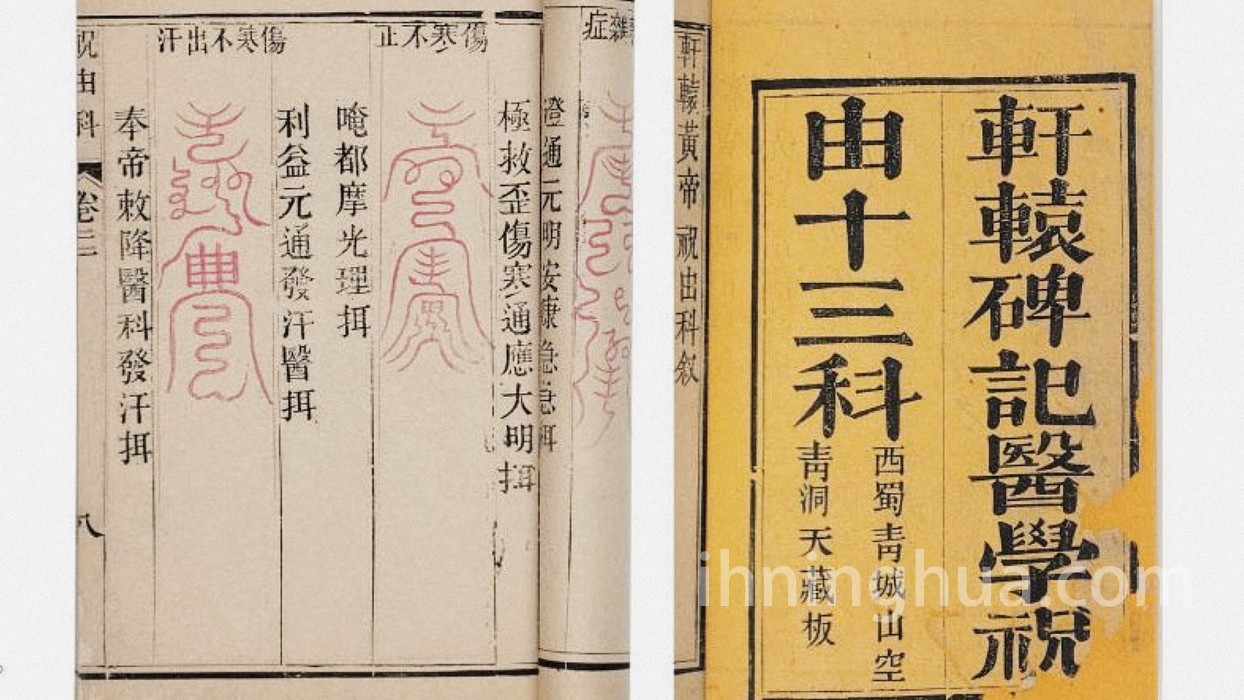 軒轅碑記醫學祝
由十三科
西蜀青城山空
青洞天藏板
軒轅黃帝祝由科叙
症雜
澄通元明安康急急
極救歪傷寒通應大明挕
傷寒不止
唵都摩光理挕
利益元通發汗醫挕
傷寒不出汗
奉帝敕降醫科發汗挕
祝由科
卷二
八
ihninghua.com